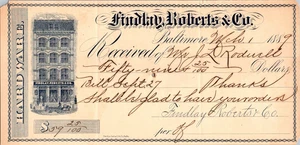 Findlay, Roberts & Co.
HARDWARE.
Baltimore, Oct 1 1889
Received of Wm J. Rodwell
Fifty nine 25/100 Dollars
Bill Sept. 27 Thanks
Shall be glad to have your orders
Findlay Roberts & Co.
$ 59 25/100
per